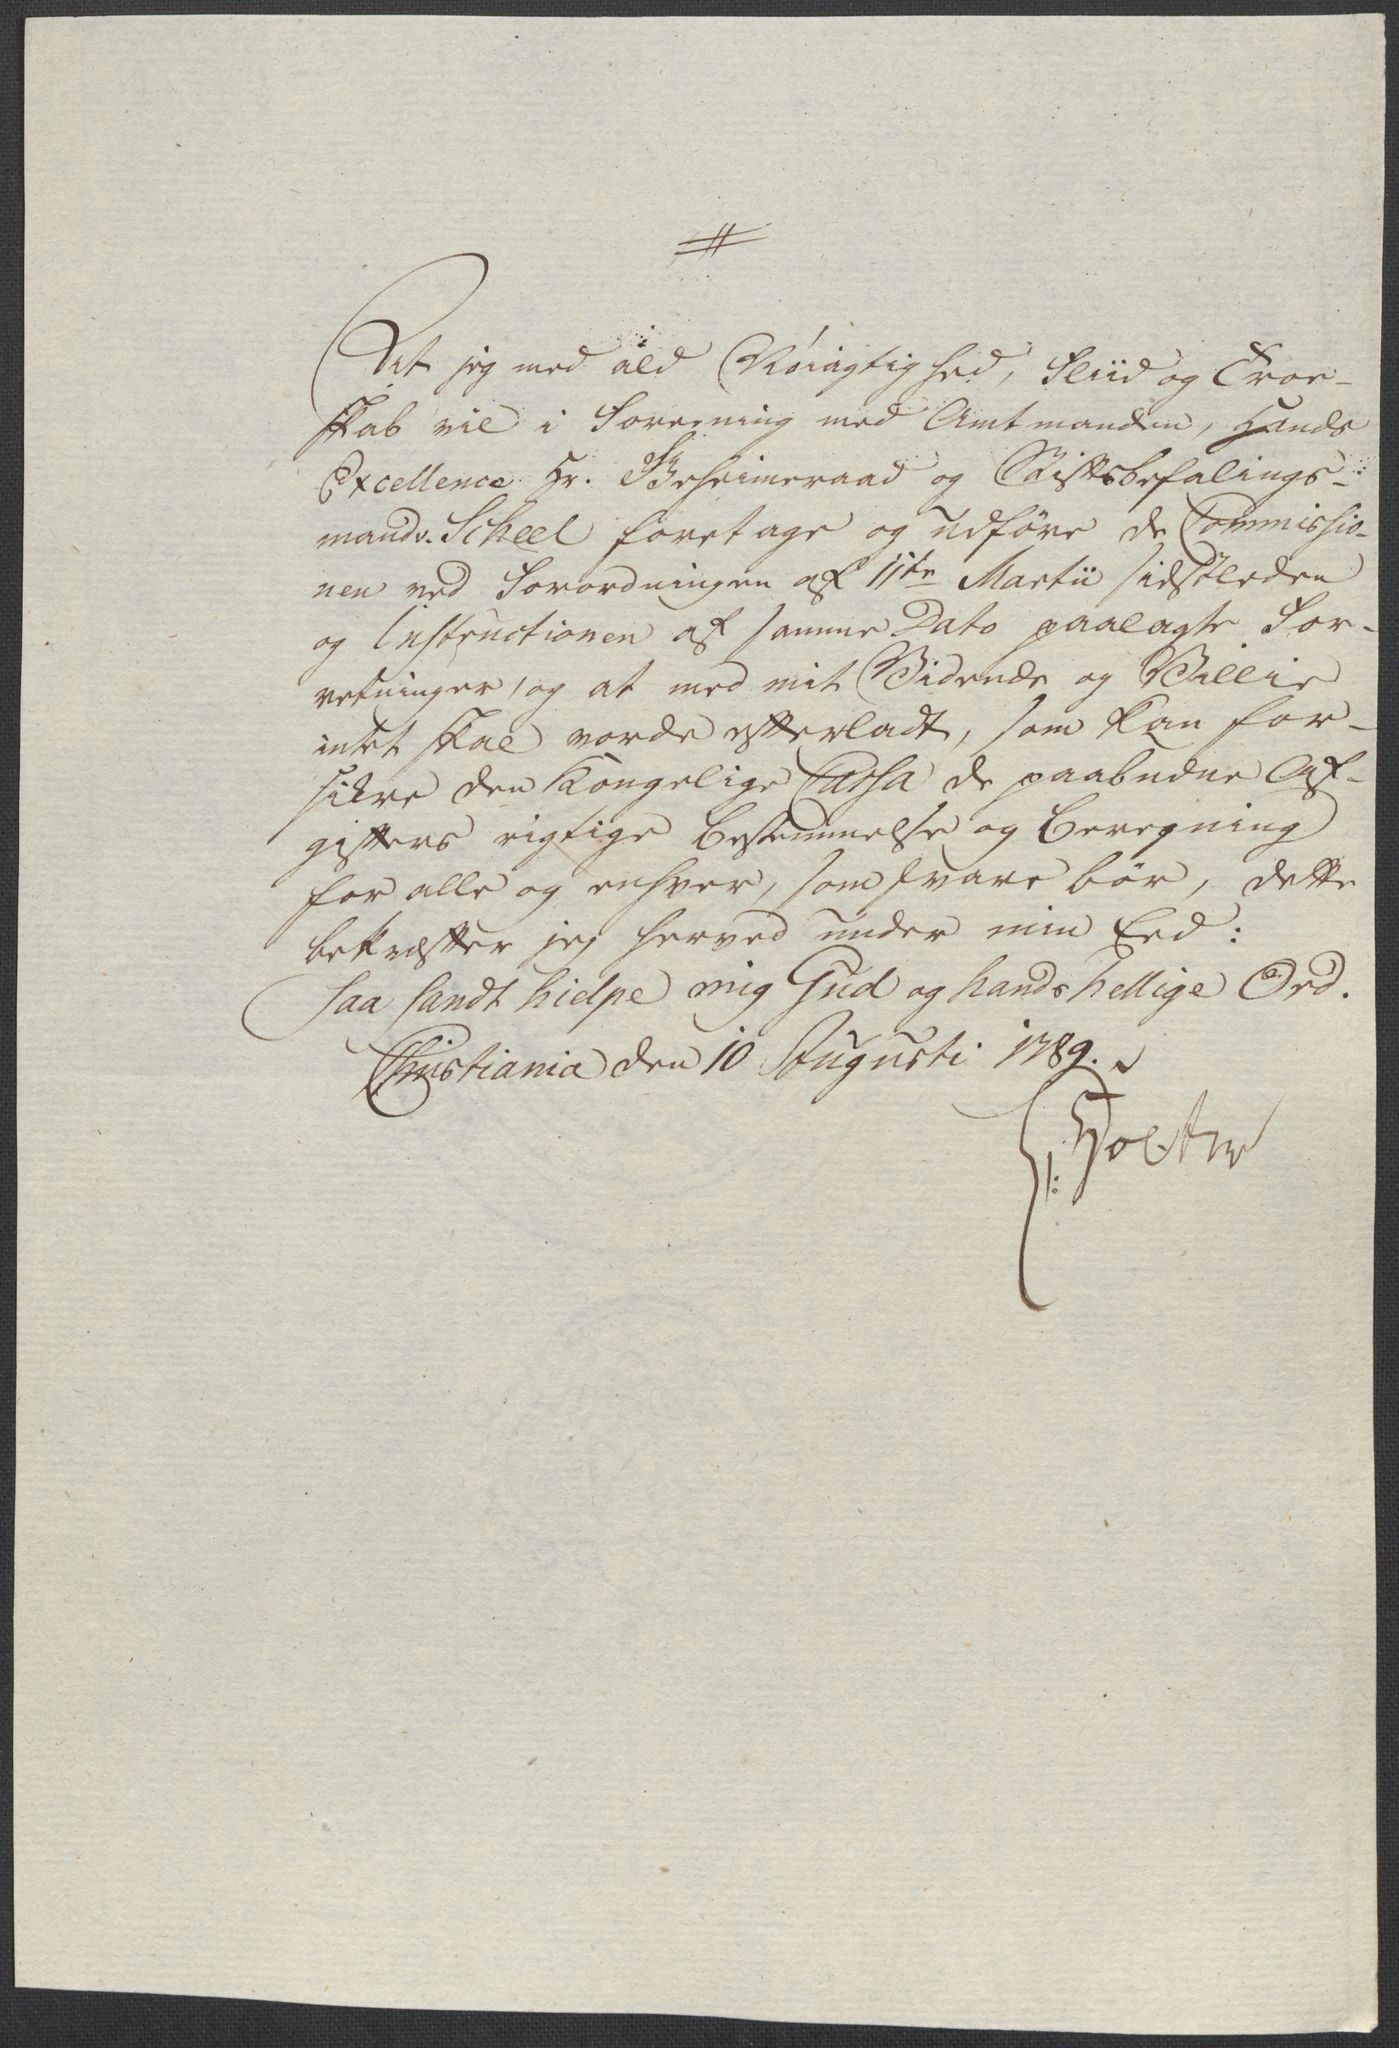 At jeg med ald Nøiagtighed, Fliid og Troe-
skab vil i Forening med Amtmanden, Hands
Excellence Hr. Geheimeraad og Stiftsbefalings-
mand v. Scheel foretage og udføre de Commissio-
nen ved Forordningen af 11te Martii sidstleden
og Instructionen af samme Dato paalagte For-
retninger, og at med mit Vidende og Villie
intet skal vorde efterladt, som kan for-
sikre den Kongelige Cassa de paabudne Af-
gifters rigtige Bestemmelse og Beregning
for alle og enhver, som svare bør, dette
bekræfter jeg herved under min Eed:
saa sandt hielpe mig Gud og hands hellige Ord.
Christiania den 10 Augusti 1789.
Holter